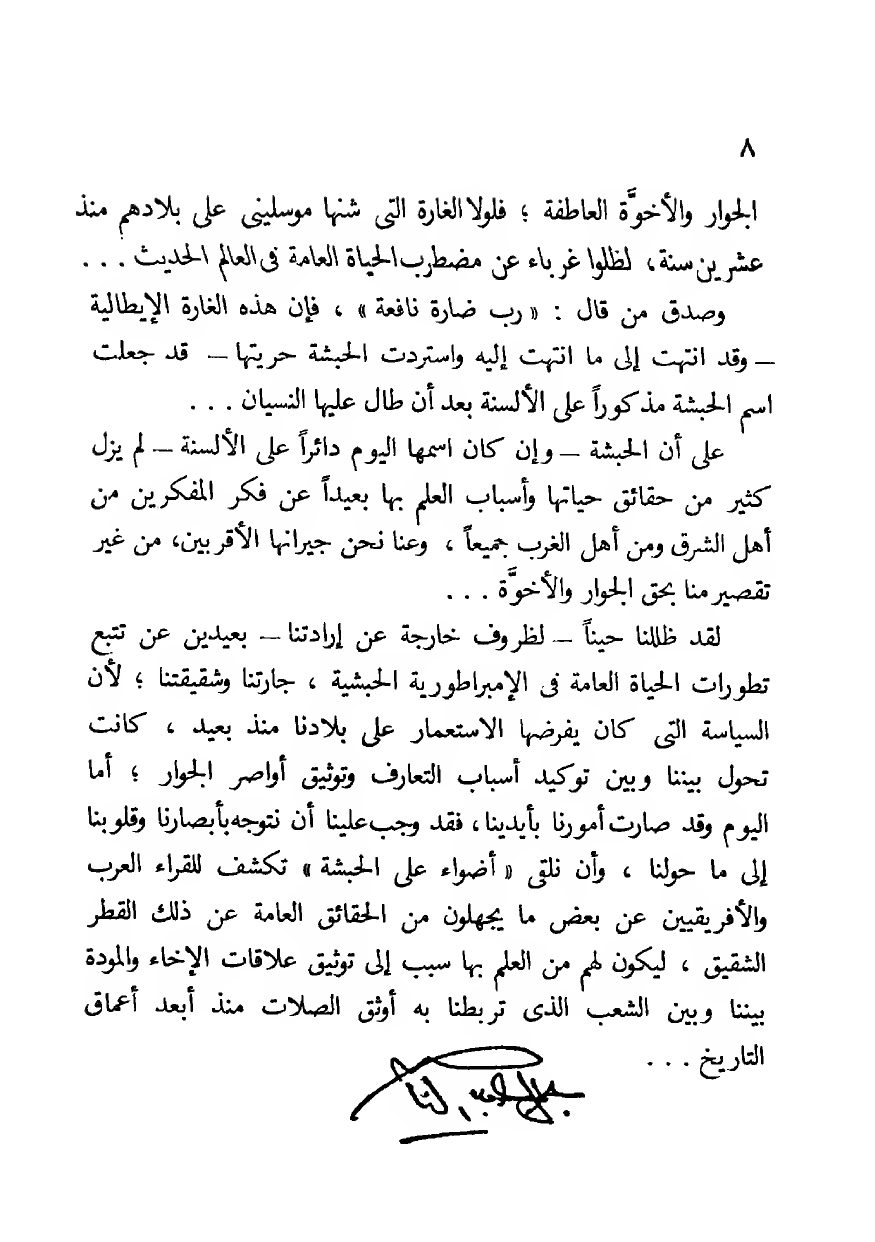 ٨
الجوار والأخوَّة العاطفة ؛ فلولا الغارة التى شنها موسلينى على بلادهم منذ
عشرين سنة ، لظلوا غرباء عن مضطرب الحياة العامة فى العالم الحديث . . .
وصدق من قال : « رب ضارة نافعة » ، فإن هذه الغارة الإيطالية
– وقد انتهت إلى ما انتهت إليه واستردت الحبشة حريتها – قد جعلت
اسم الحبشة مذكوراً على الألسنة بعد أن طال عليها النسيان . . .
على أن الحبشة – وإن كان اسمها اليوم دائراً على الألسنة – لم يزل
كثير من حقائق حياتها وأسباب العلم بها بعيداً عن فكر المفكرين من
أهل الشرق ومن أهل الغرب جميعاً ، وعنا نحن جيرانها الأقربين، من غير
تقصير منا بحق الجوار والأخوَّة . . .
لقد ظللنا حيناً – لظروف خارجة عن إرادتنا – بعيدين عن تتبع
تطورات الحياة العامة فى الإمبراطورية الحبشية ، جارتنا وشقيقتنا ؛ لأن
السياسة التى كان يفرضها الاستعمار على بلادنا منذ بعيد ، كانت
تحول بيننا وبين توكيد أسباب التعارف وتوثيق أواصر الجوار ؛ أما
اليوم وقد صارت أمورنا بأيدينا ، فقد وجب علينا أن نتوجه بأبصارنا وقلوبنا
إلى ما حولنا ، وأن نلقى « أضواء على الحبشة » تكشف للقراء العرب
والأفريقيين عن بعض ما يجهلون من الحقائق العامة عن ذلك القطر
الشقيق ، ليكون لهم من العلم بها سبب إلى توثيق علاقات الإخاء والمودة
بيننا وبين الشعب الذى تربطنا به أوثق الصلات منذ أبعد أعماق
التاريخ . . .